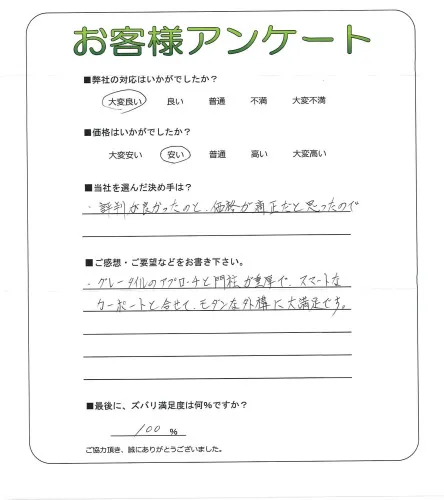 お客様アンケート
■弊社の対応はいかがでしたか？
大変良い 良い 普通 不満 大変不満
■価格はいかがでしたか？
大変安い 安い 普通 高い 大変高い
■当社を選んだ決め手は？
・評判が良かったのと、価格が適正だと思ったので
■ご感想・ご要望などをお書き下さい。
・グレータイルのアプローチと門柱が重厚で、スマートな
カーポートと合せて、モダンな外構に大満足です。
■最後に、ズバリ満足度は何%ですか？
100 %
ご協力頂き、誠にありがとうございました。